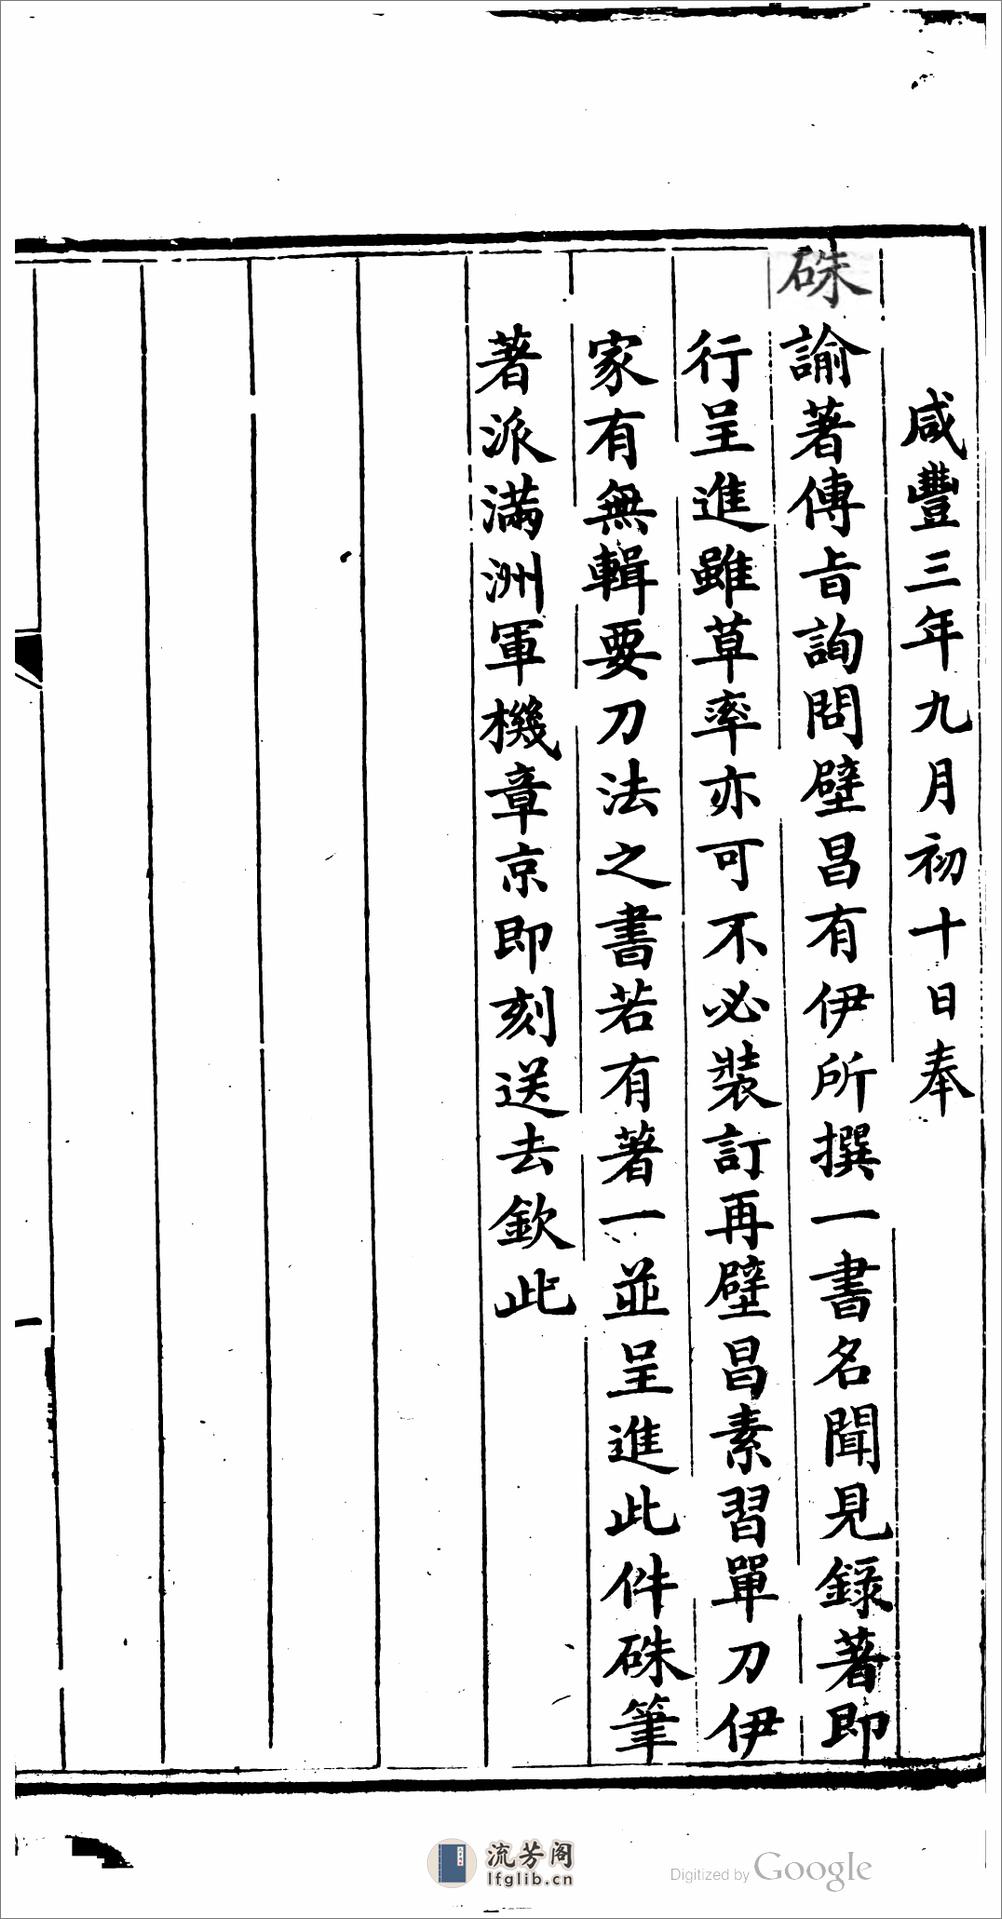 咸豐三年九月初十日奉
硃諭著傳旨詢問壁昌有伊所撰一書名聞見錄著即
行呈進雖草率亦可不必裝訂再壁昌素習單刀伊
家有無輯要刀法之書若有著一並呈進此件硃筆
著派滿洲軍機章京即刻送去欽此
流芳阁
lfglib.cn
Digitized by Google